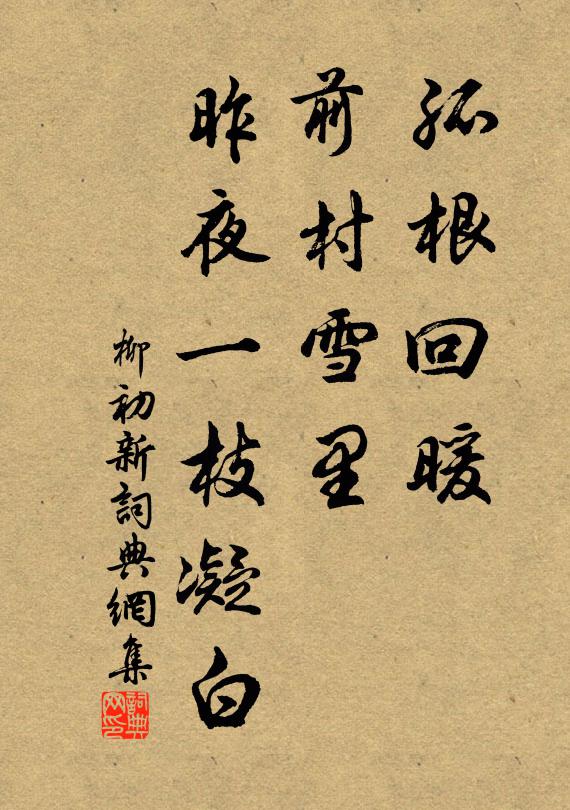 孤根回暖
前村雪里
昨夜一枝凝白
柳初新詞典網集
詞典
网印